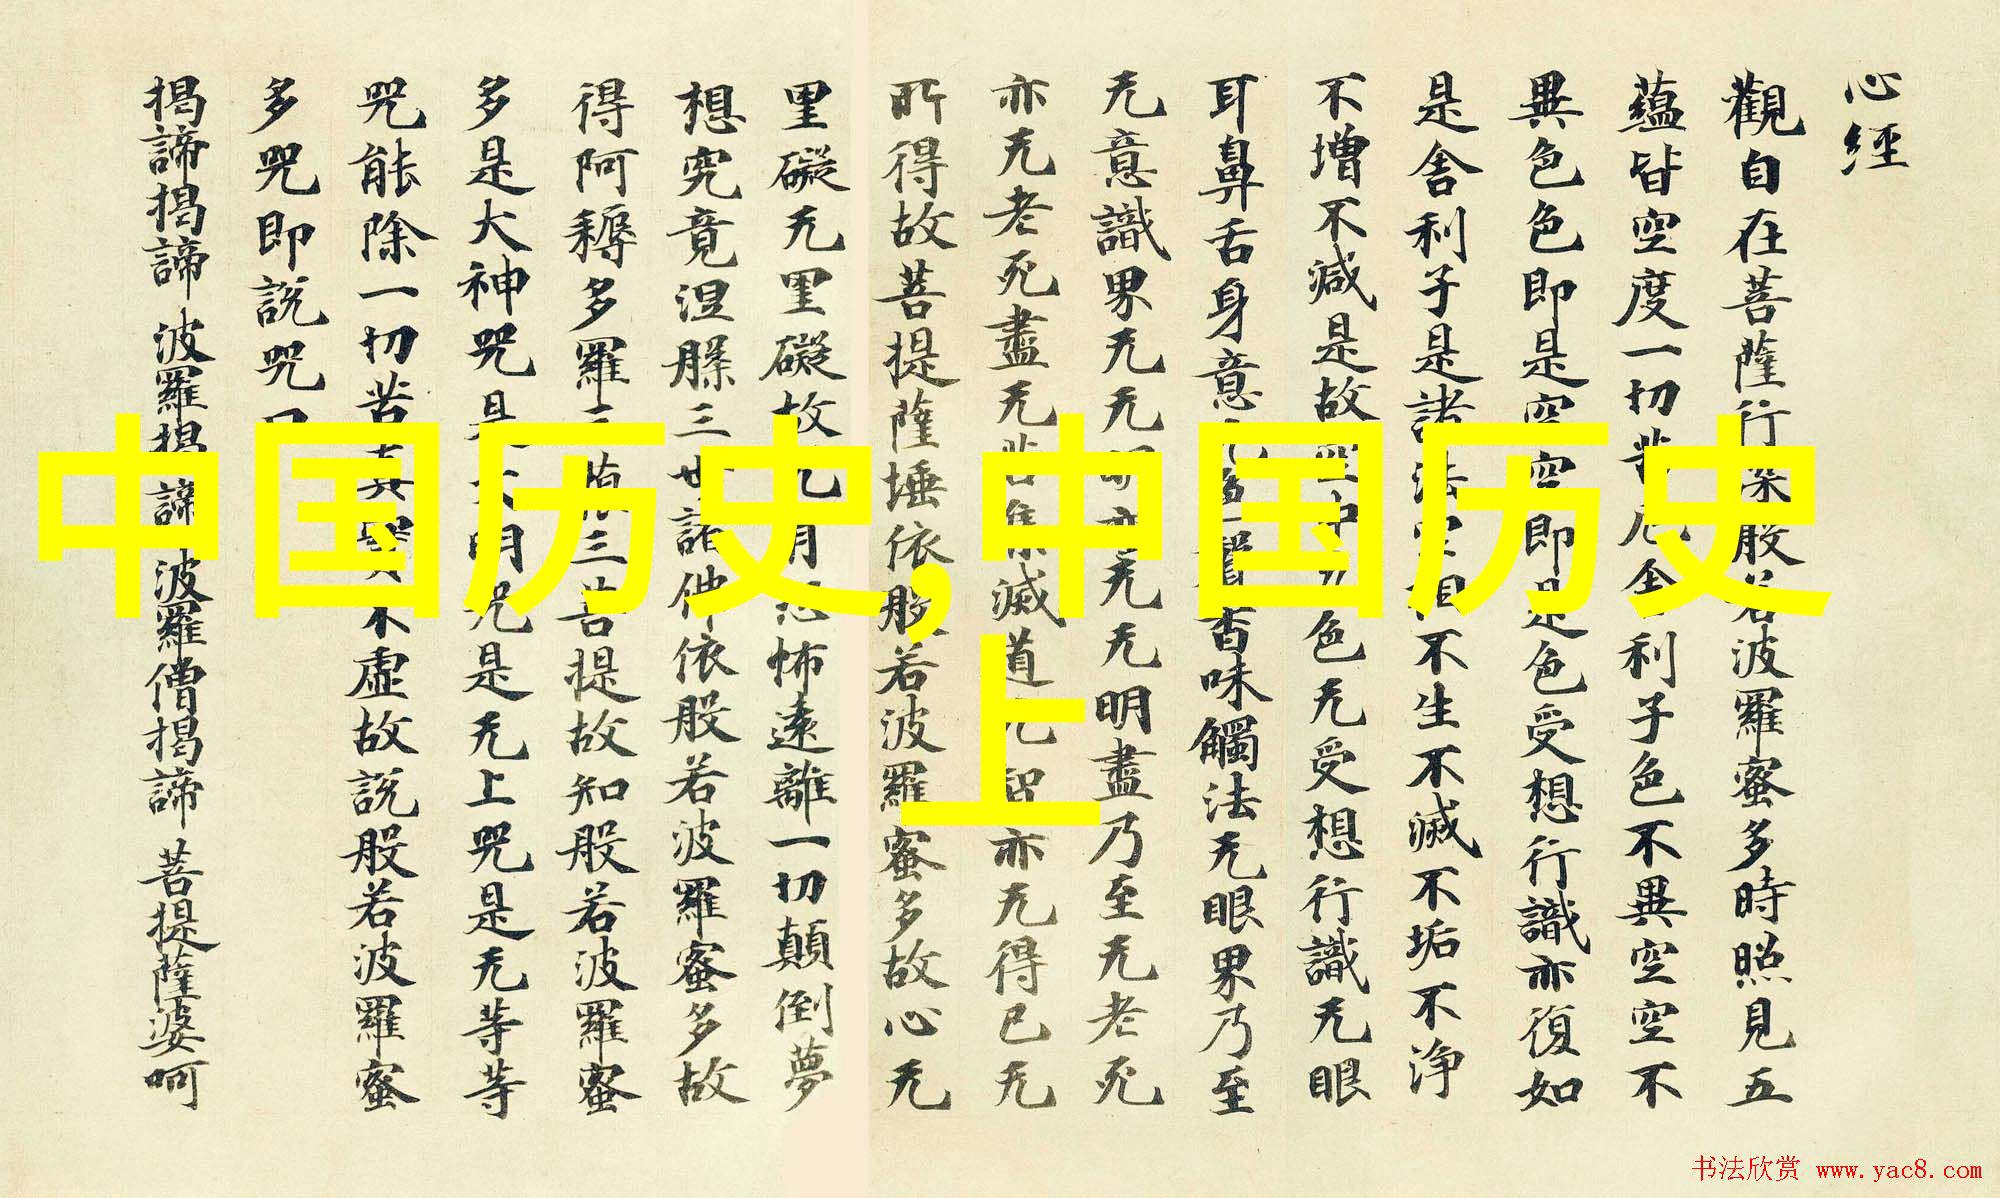 心經
觀自在菩薩行深般若波羅蜜多時照見五
蘊皆空度一切苦厄舍利子色不異空空不
異色色即是空空即是色受想行識亦復如
是舍利子是諸法空相不生不滅不垢不浄
不增不減是故空中无色无受想行識无眼
耳鼻舌身意无色聲香味觸法无眼界乃至
无意識界无无明亦无无明盡乃至无老死
亦无老死盡无苦集滅道无智亦无得已无
所得故菩提薩埵依般若波羅蜜多故心无
罣礙无罣礙故无有恐怖遠離一切顛倒夢
想究竟涅槃三世諸佛依般若波羅蜜多故
得阿耨多羅三藐三菩提故知般若波羅蜜
多是大神咒是大明咒是无上咒是无等等
咒能除一切苦真實不虛故說般若波羅蜜
多咒即說咒曰
揭諦揭諦 波羅揭諦 波羅僧揭諦 菩提薩婆呵
中国历史,中国历史
上
书法欣赏 www.yac8.com